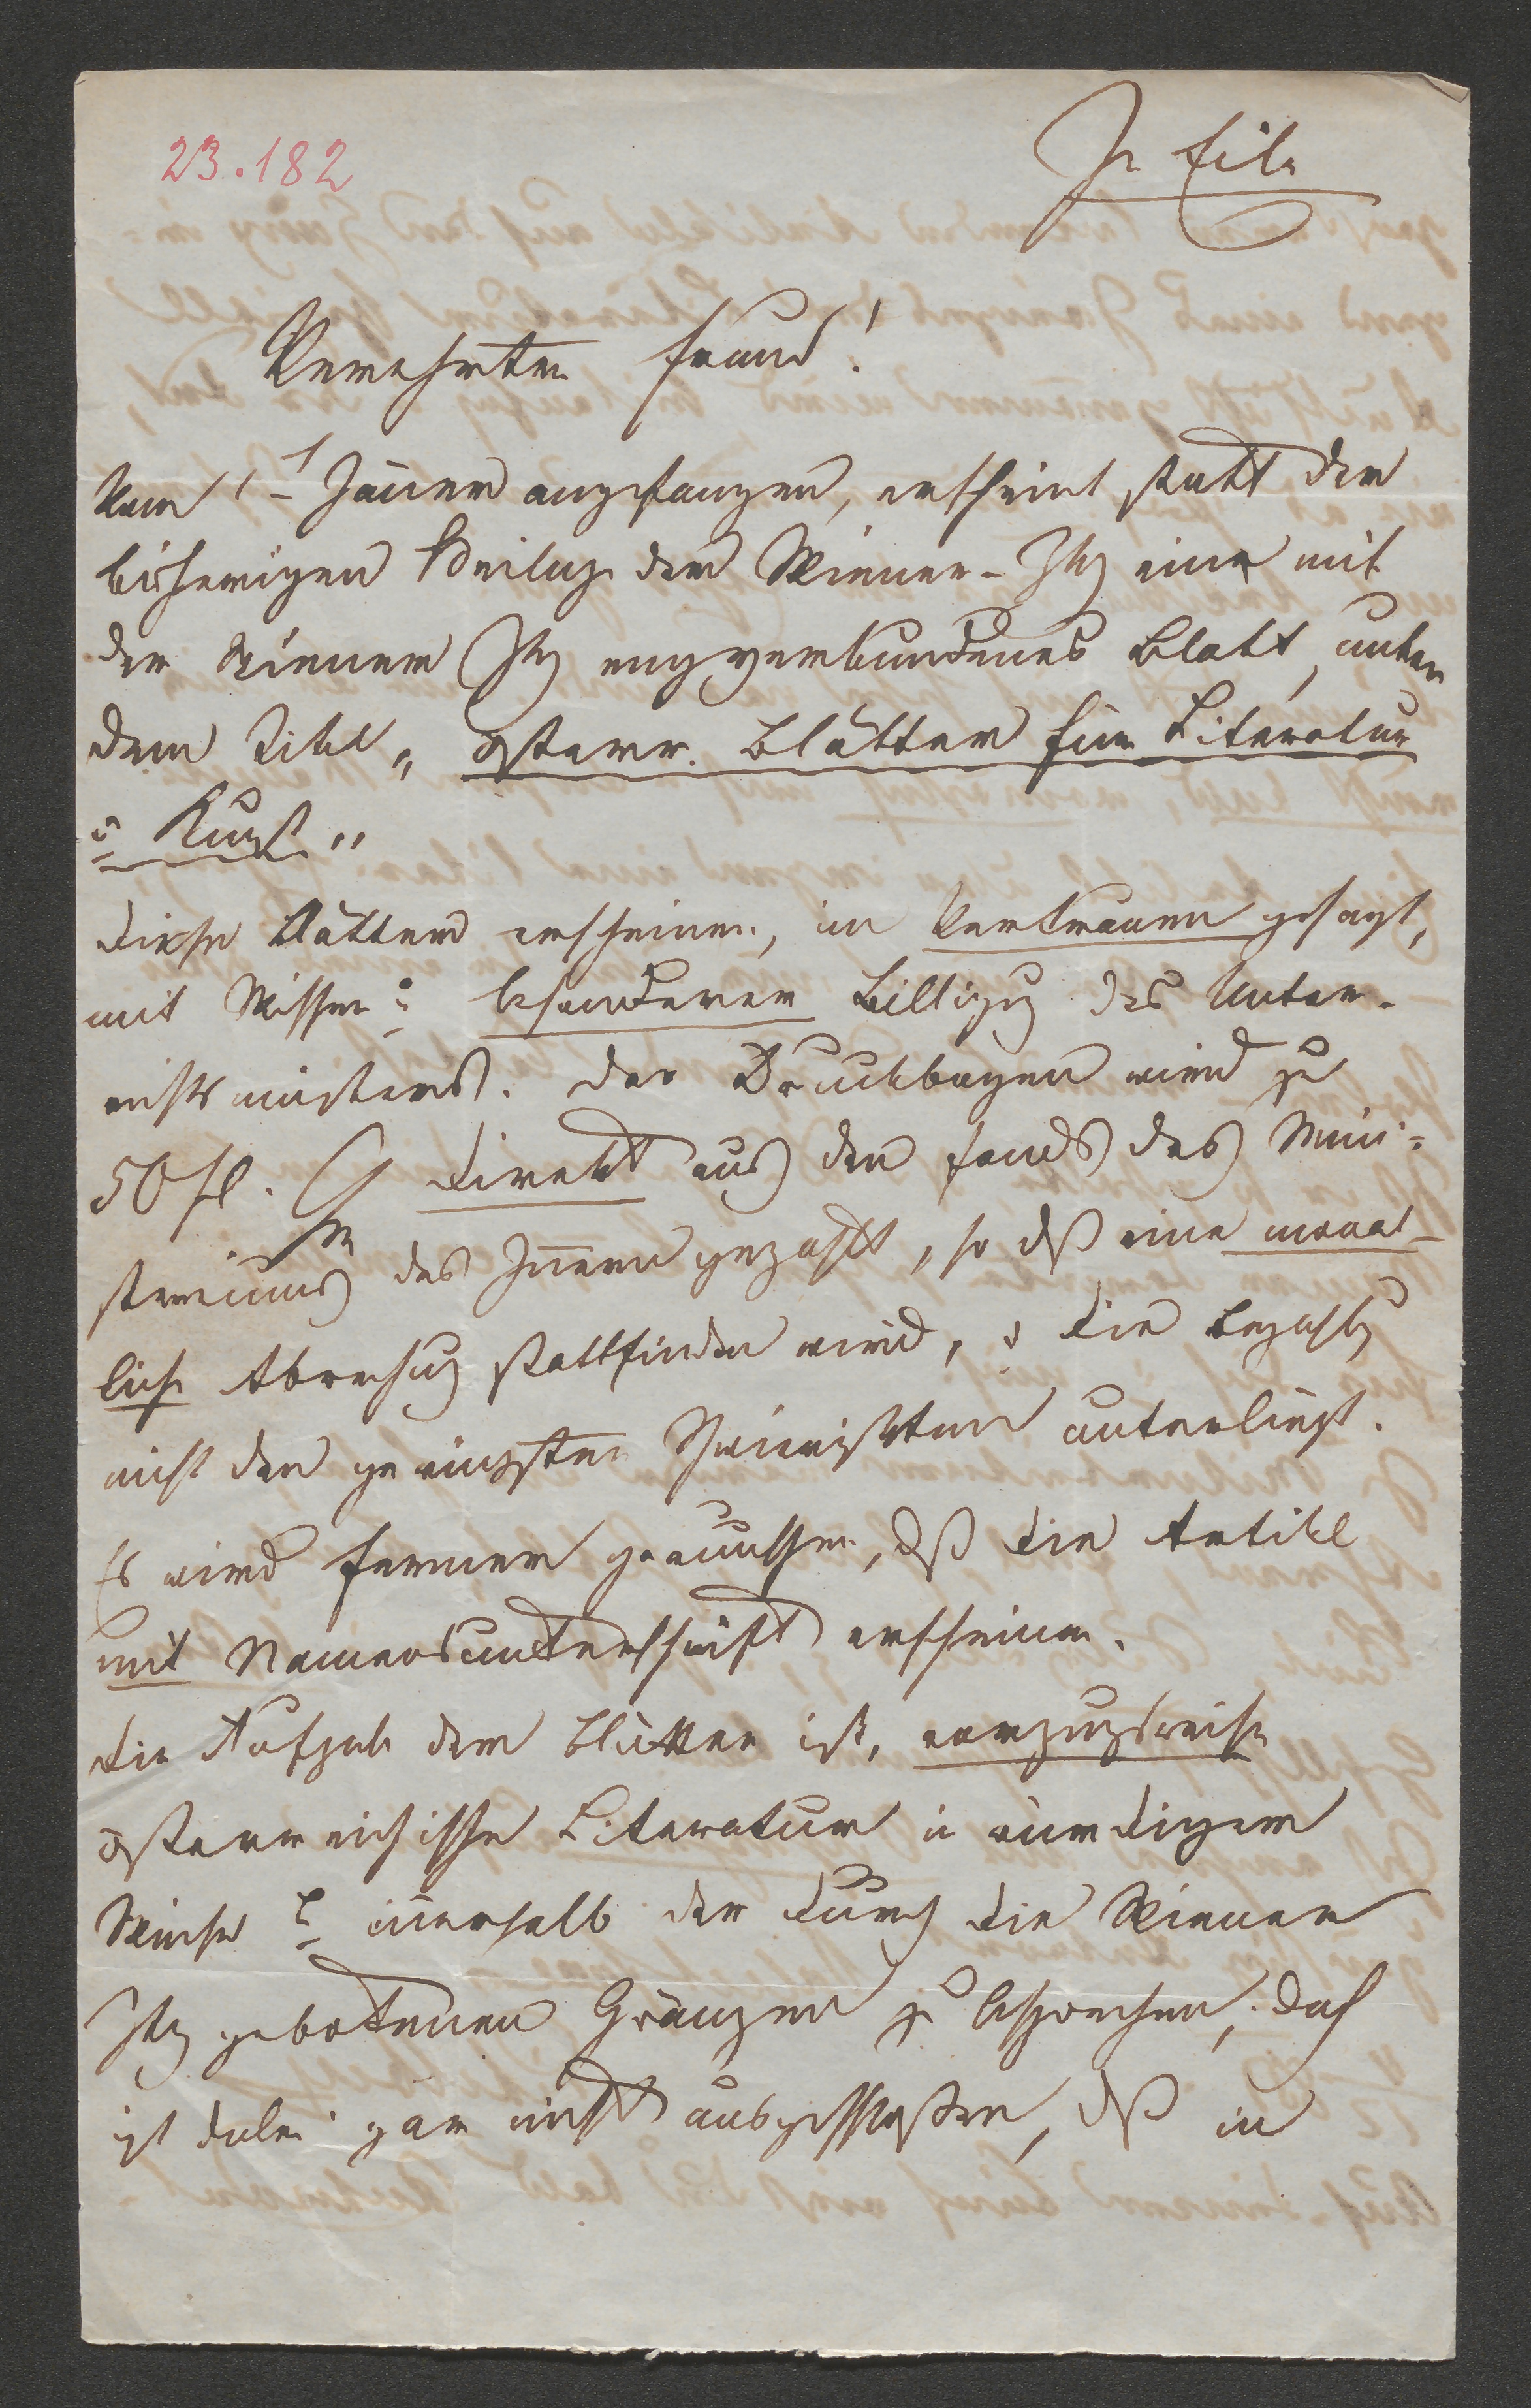 23.182
In Eile
Verehrter Freund!
Vom 1t Jäner angefangen, erscheint statt der
bisherigen Beilage der Wiener-Ztg eine mit
der Wiener Ztg eng verbundenes Blatt, unter
dem Titel „österr. Blätter für Literatur
u Kunst"
Diese Blätter erscheinen, im Vertrauen gesagt,
mit Wissen u besonderer Billigug des Unter-
richtsministers. Der Druckbogen wird zu
50 fl. CM direkt aus den Fonds des Mini-
steriums des Innern gezahlt, so dß eine monat-
liche Abrechnug stattfinden wird, u die Bezahlg
nicht den geringsten Schwierigkeiten unterliegt.
Es wird ferner gewunschen, dß die Artikel
mit Namensunterschrift erscheinen.
Die Aufgabe der Blätter ist, vorzugsweise
österreichische Literatur in würdiger
Weise u innerhalb der durch die Wiener
Ztg gebotenen Gränzen zu besprechen, doch
ist dabei gar nicht ausgeschloßen, dß in